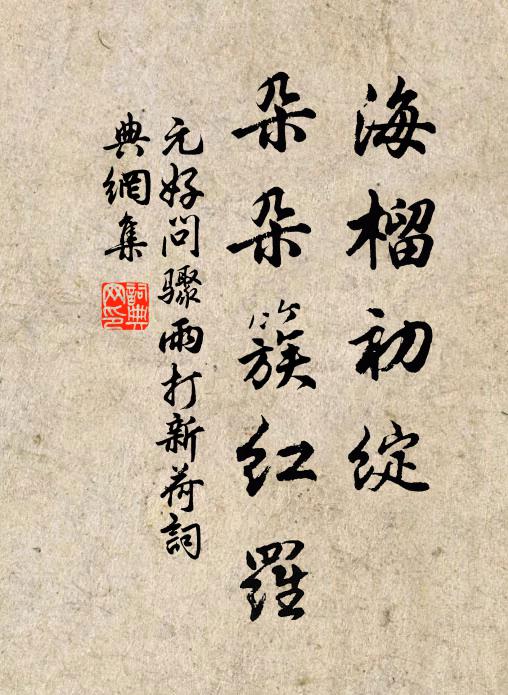 海榴初綻
朵朵簇紅羅
元好問驟雨打新荷詞
典網集
詞典網印